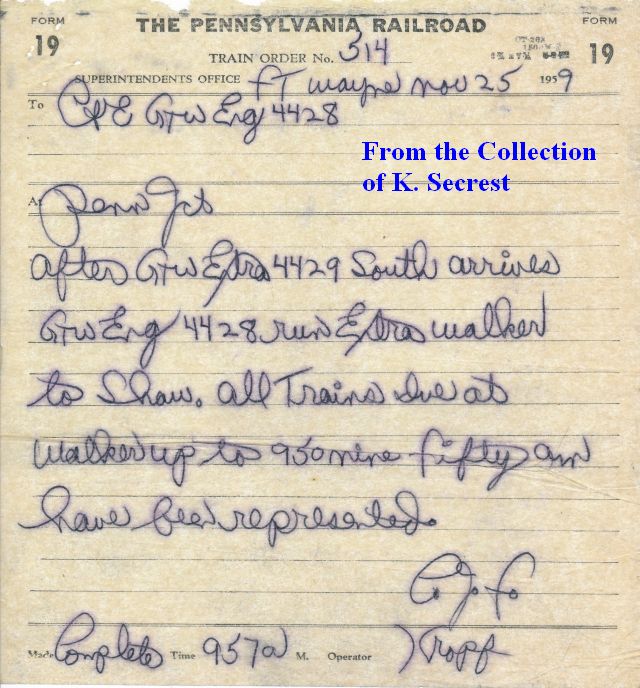 FORM 19 THE PENNSYLVANIA RAILROAD FORM 19
TRAIN ORDER No. 314
SUPERINTENDENTS OFFICE ft wayne nov 25 1959
To C&E GTW Eng 4428
From the Collection
of K. Secrest
At Penn Jct
after GTW Extra 4429 South arrives
GTW Eng 4428 run Extra walker
to Shaw. all Trains due at
walker up to 950 nine fifty am
have been represented.
C.J.F.
Made Complete Time 957a M. Operator Tropp